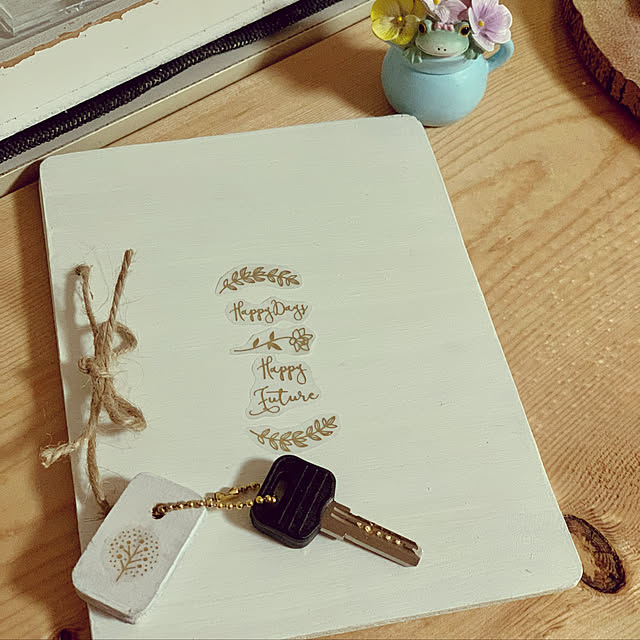 Happy Days
Happy
Future